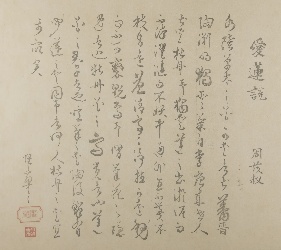 愛蓮說
周茂叔
水陸草木之花可愛者甚蕃晉
陶淵明獨愛菊自李唐來世人
甚愛牡丹予獨愛蓮之出淤泥而
不染濯清漣而不妖中通外直不蔓不
枝香遠益清亭亭淨植可遠觀
而不可褻翫焉予謂菊花之隱
逸者也牡丹花之富貴者也蓮
花之君子者也噫菊之愛陶後鮮有聞
蓮之愛同予者何人牡丹之愛宜
乎眾矣